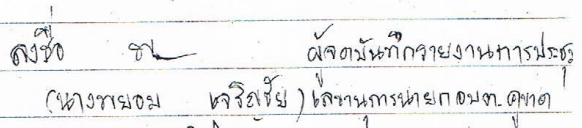 ลงชื่อ ผู้จดบันทึกรายงานการประชุม
(นางพยอม เจริญชัย) เลขานุการนายก อบต. คูขาด